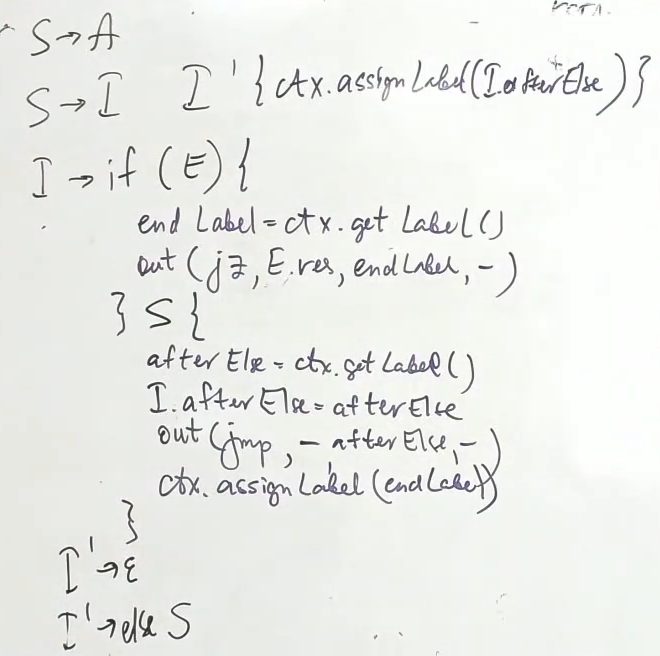 S→A
S→I I' { ctx.assignLabel(I.afterElse) }
I → if (E) {
end Label = ctx.get Label()
out (jz, E.res, endLabel, -)
} S {
after Else = ctx.get Label()
I.afterElse = afterElse
out (jmp, - afterElse, -)
ctx.assignLabel(endLabel)
}
I' → ε
I' → else S